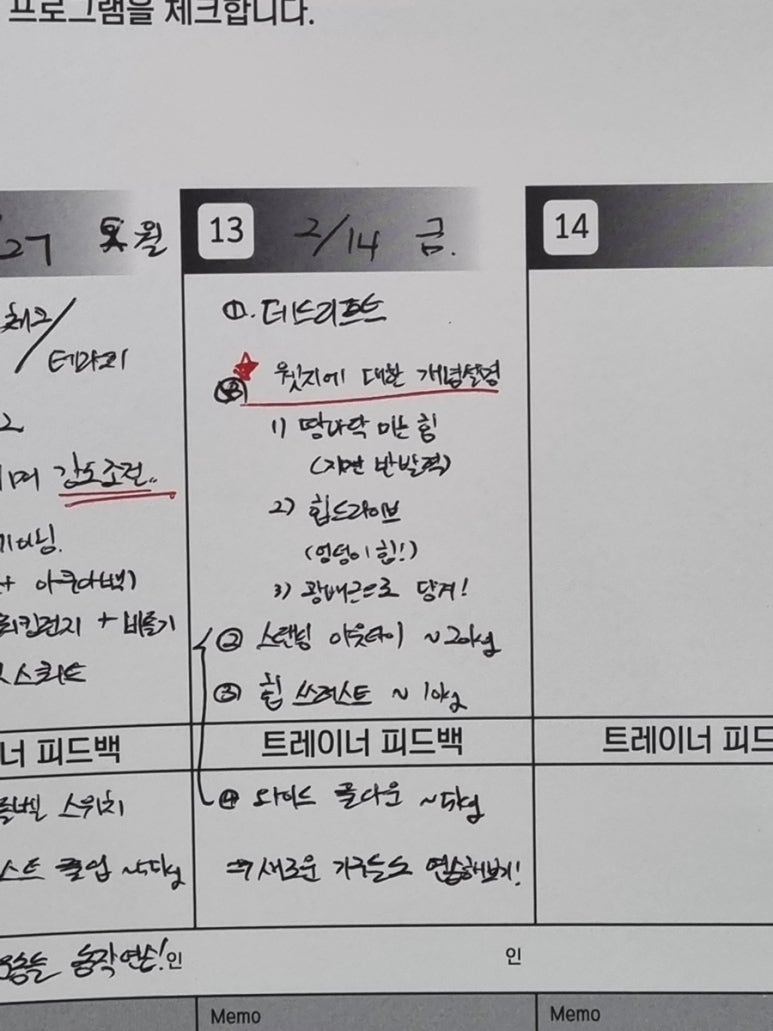 프로그램을 체크합니다.
27 월
체크/
테라피
2
강도조절..
+ 아쿠아백)
워킹런지 + 비틀기
스쿼트
너 피드백
스위치
스트 풀업 ~5kg
동작연습! 인
13 2/14 금.
①. 데드리프트
★ 힌지에 대한 개념설명
1) 땅바닥 미는 힘
(지면 반발력)
2) 힙드라이브
(엉덩이 힘!)
3) 광배근으로 당겨!
② 스탠딩 아웃타이 ~20kg
③ 힙 쓰러스트 ~10kg
트레이너 피드백
④ 와이드 풀다운 ~5kg
⇒ 새로운 기구들도 연습해보기!
인
Memo
14
트레이너 피드
Memo